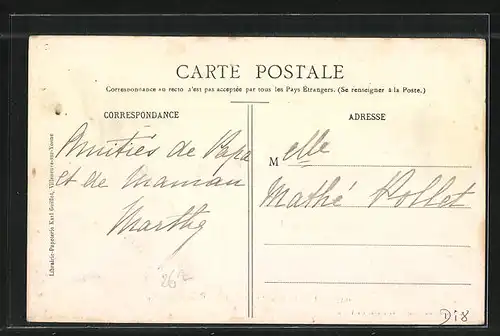 CARTE POSTALE
Correspondance au recto n'est pas acceptée par tous les Pays Étrangers. (Se renseigner à la Poste.)
CORRESPONDANCE
ADRESSE
Amitiés de Papa
et de Maman
Marthe
Melle
Mathé Rollet
Librairie-Papeterie Karl Guillot, Villeneuve-sur-Yonne
26
D18